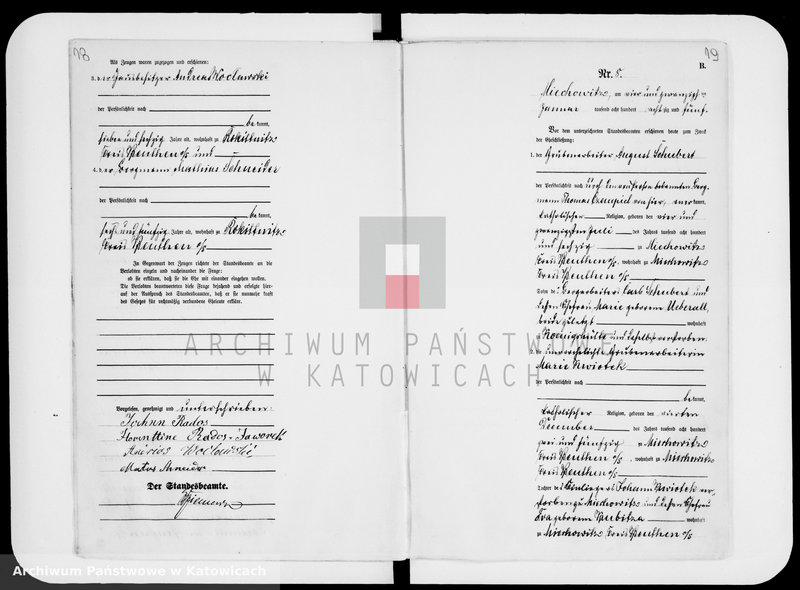 18
Als Zeugen waren zugezogen und erschienen:
3. der Hausbesitzer Andreas Woclawski
der Persönlichkeit nach
be kannt,
sieben und sechzig Jahre alt, wohnhaft zu Rokittnitz
Kreis Beuthen o/S und
4. der Bergmann Mathias Schneider
der Persönlichkeit nach
be kannt,
sechs und fünfzig Jahre alt, wohnhaft zu Rokittnitz
Kreis Beuthen o/S
In Gegenwart der Zeugen richtete der Standesbeamte an die
Verlobten einzeln und nacheinander die Frage:
ob sie erklären, daß sie die Ehe mit einander eingehen wollen.
Die Verlobten beantworteten diese Frage bejahend und erfolgte hier-
auf der Ausspruch des Standesbeamten, daß er sie nunmehr kraft
des Gesetzes für rechtmäßig verbundene Eheleute erkläre.
Vorgelesen, genehmigt und unterschrieben
Johann Rados
Florentine Rados-Jaworek
Der Standesbeamte.
Archiwum Państwowe w Katowicach
19
B.
Nr. 5.
Miechowitz, am vier und zwanzigsten
Januar tausend acht hundert achtzig und fünf.
Vor dem unterzeichneten Standesbeamten erschienen heute zum Zweck
der Eheschließung:
1. der Grubenarbeiter August Schubert
der Persönlichkeit nach durch den von Person bekannten Berg-
mann Thomas von hier, aner kannt,
katholischer Religion, geboren den vier und
zwanzigsten Juli des Jahres tausend acht hundert
und sechzig zu Miechowitz
Kreis Beuthen o/S, wohnhaft zu Miechowitz
Kreis Beuthen o/S
Sohn des Bergarbeiters Carl Schubert und
dessen Ehefrau Marie geborene Ueberall,
beide zuletzt wohnhaft
zu Koenigshütte und daselbst verstorben.
2. die unverehelichte Grubenarbeiterin
Marie Kwiotek
der Persönlichkeit nach
be kannt,
katholischer Religion, geboren den vierten
Dezember des Jahres tausend acht hundert
zwei und fünfzig zu Miechowitz
Kreis Beuthen o/S, wohnhaft zu Miechowitz
Kreis Beuthen o/S
Tochter des Einliegers Johann Kwiotek ver-
storben zu Miechowitz und dessen Ehefrau
Eva geborene wohnhaft
zu Miechowitz, Kreis Beuthen o/S
ARCHIWUM PAŃSTWOWE
W KATOWICACH